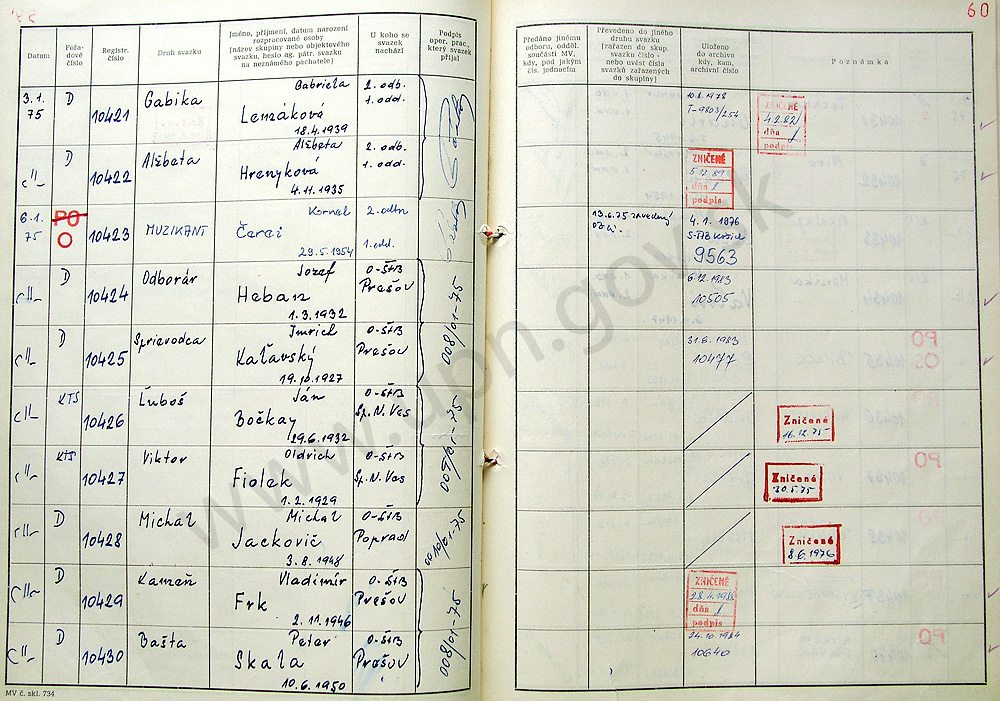 60
Datum
Pořadové číslo
Registr. číslo
Druh svazku
Jméno, příjmení, datum narození rozpracované osoby (název skupiny nebo objektového svazku, heslo ag. pátr. svazku na neznámého pachatele)
U koho se svazek nachází
Podpis oper. prac., který svazek přijal
Předáno jinému odboru, odděl. součásti MV, kdy, pod jakým čís. jednacím
Převedeno do jiného druhu svazku (zařazen do skup. svazku čís.) nebo uvést čísla svazků zařazených do skupiny)
Uloženo do archivu kdy, kam, archivní číslo
Poznámka
3.1. 75 D 10421 Gabika Gabriela Lemáková 18.4.1939 2. odb. 1. odd.
10.8.1978 T-9803/254
ZNIČENÉ 4.2.82 dňa podpis
-"- D 10422 Alžbeta Alžbeta Hrenyková 4.11.1935 2. odb. 1. odd.
ZNIČENÉ dňa podpis
6.1. 75 PO O 10423 MUZIKANT Kornel Čerei 29.5.1954 2. odbor 1. odd.
13.6.75 zavedený
4.1.1976 9563
-"- D 10424 Odborár Jozef Heban 1.3.1932 O-ŠtB Prešov
6.12.1983 10505
-"- D 10425 Sprievodca Imrich Kaťavský 19.10.1927 O-ŠtB Prešov
008/01-75
31.8.1983 10477
-"- KTS 10426 Ľuboš Ján Bočkay 29.6.1932 O-ŠtB Sp. N. Ves
Zničené 16.12.75
-"- KTS 10427 Viktor Oldrich Fiolek 1.2.1929 O-ŠtB Sp. N. Ves
Zničené 30.5.75
-"- D 10428 Michal Michal Jackovič 3.8.1948 O-ŠtB Poprad
0010/01-75
Zničené 8.6.1976
-"- D 10429 Kameň Vladimír Frk 2.11.1946 O-ŠtB Prešov
ZNIČENÉ 28.4.1988 dňa podpis
-"- D 10430 Bašta Peter Skala 10.6.1950 O-ŠtB Prešov
008/01-75
24.10.1984 10640
MV č. skl. 734
www.upn.gov.sk